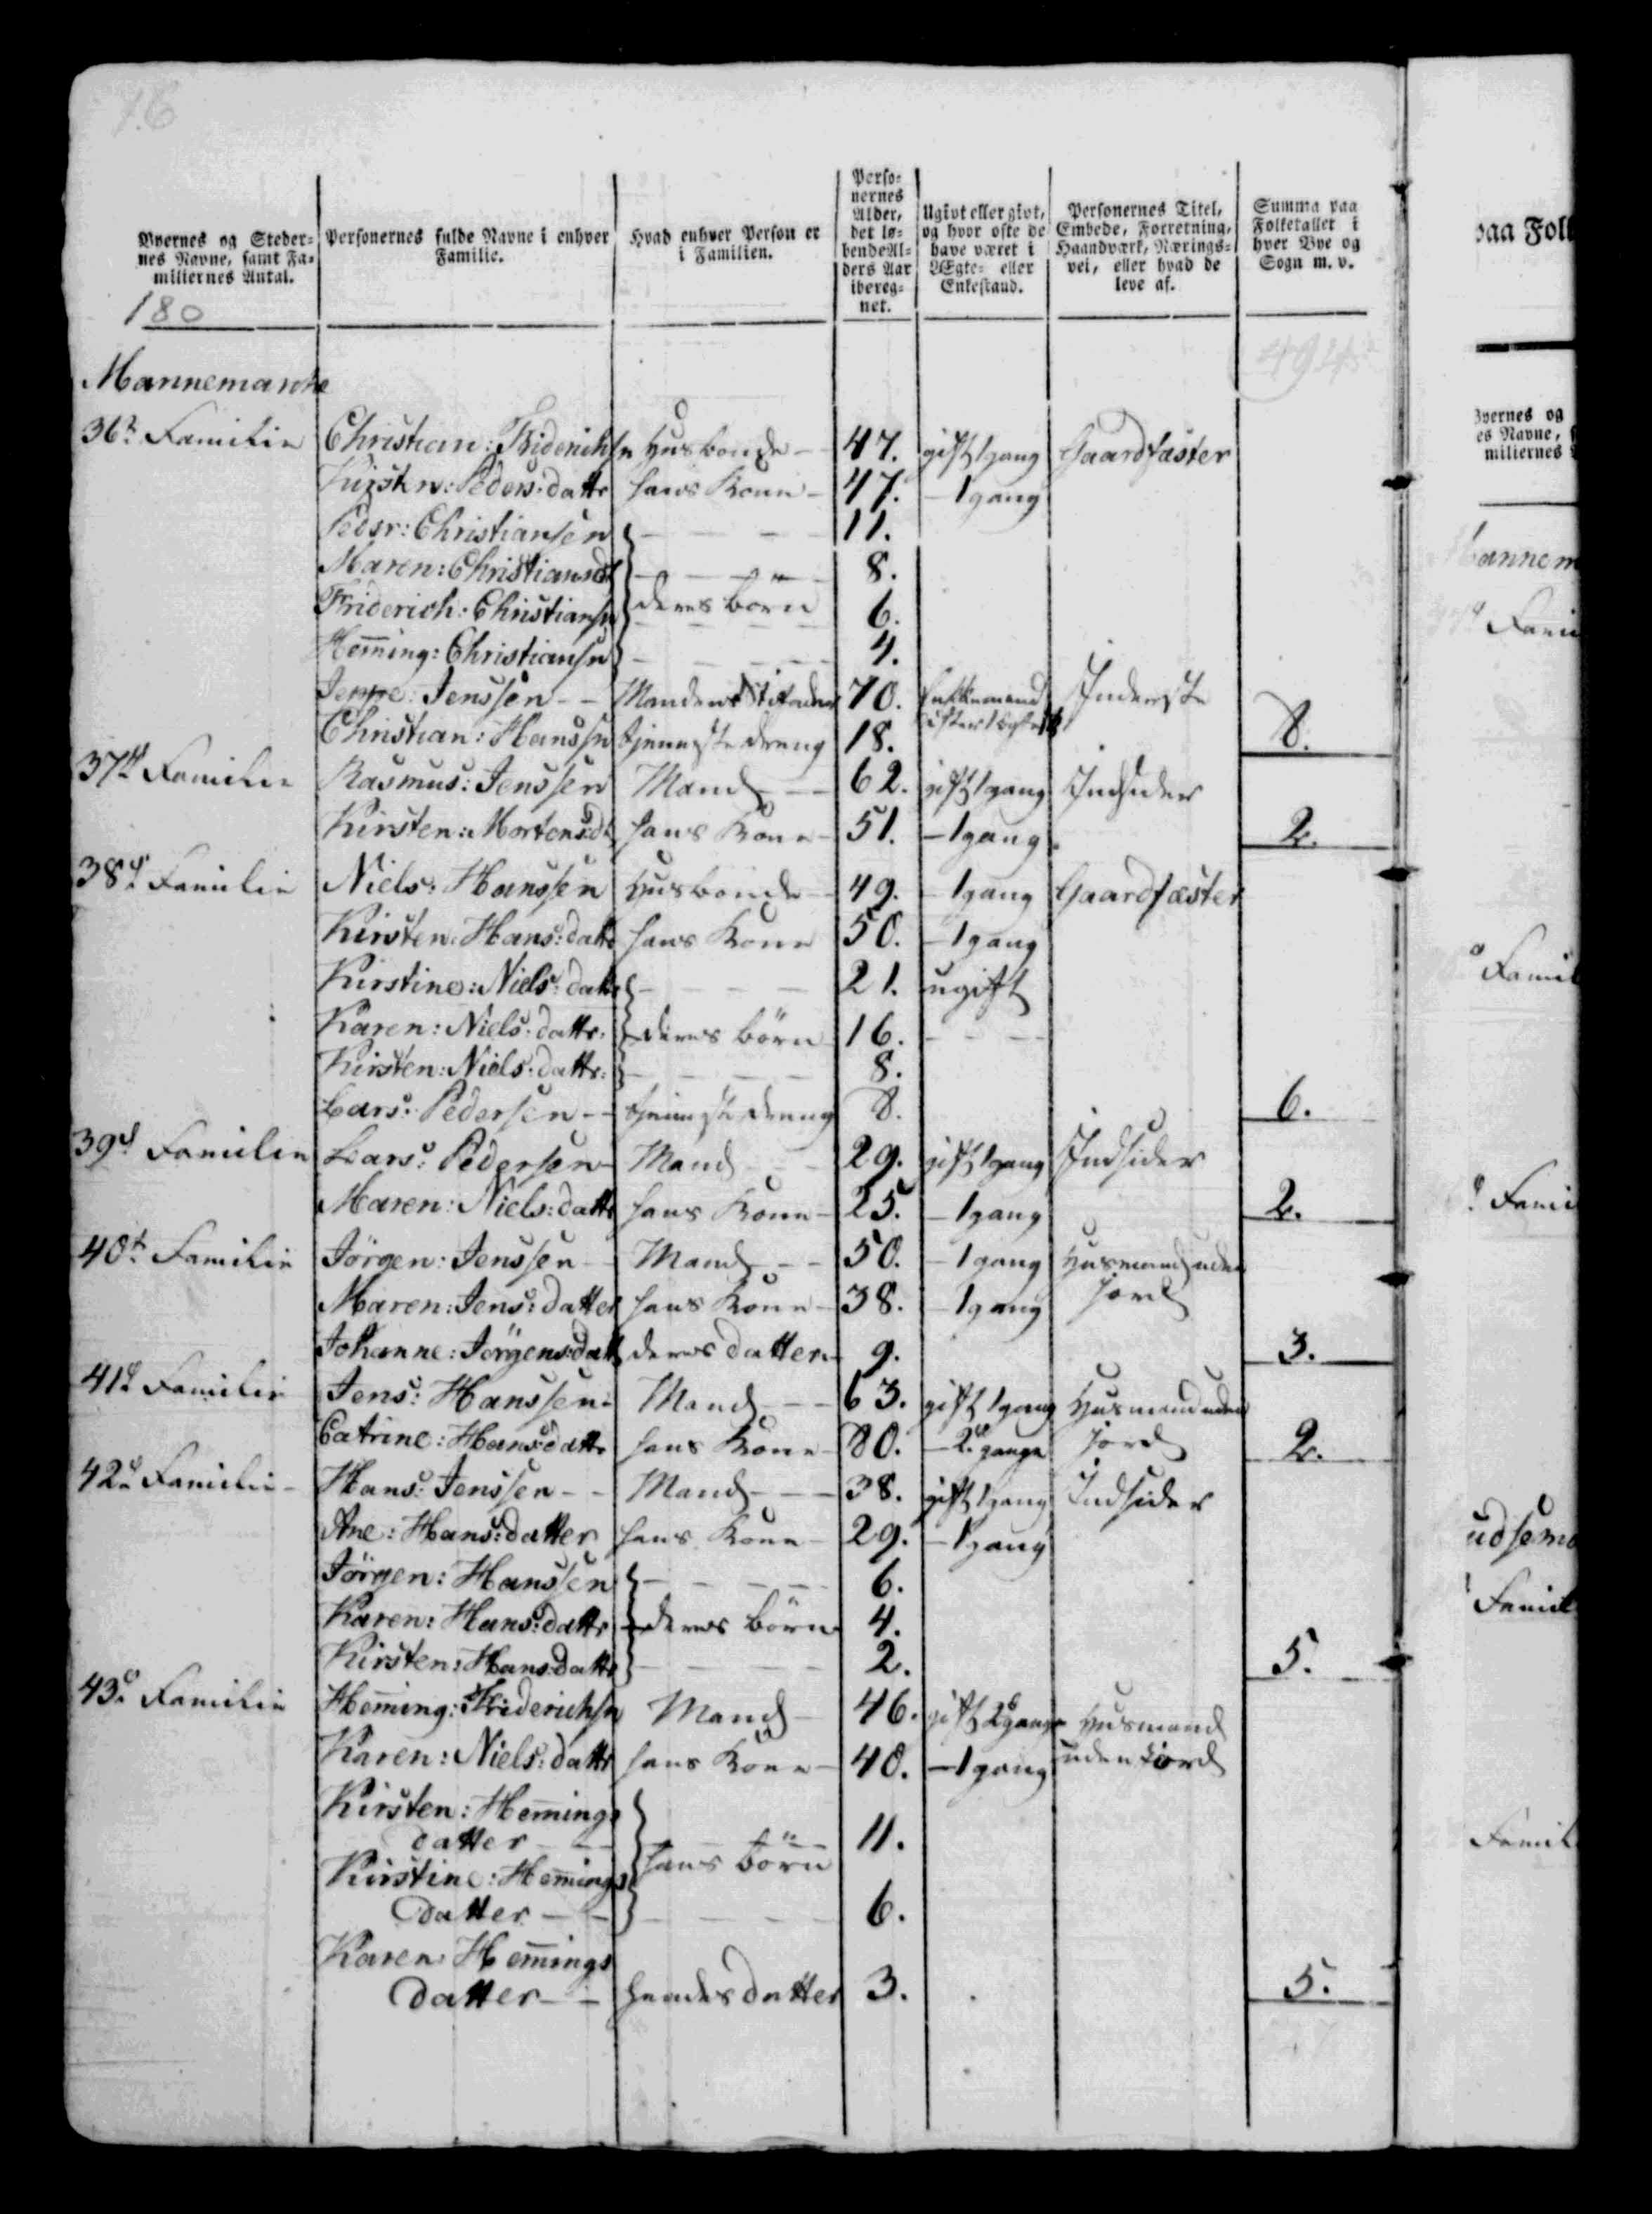 Byernes og Steder-
nes Navne, samt Fa-
miliernes Antal.
180
Personernes fulde Navne i enhver
Familie.
Hvad enhver Person er
i Familien.
Perso-
nernes
Alder,
det lø-
bende Al-
ders Aar
ibereg-
net.
Ugivt eller givt,
og hvor ofte de
have været i
Ægte- eller
Enkestand.
Personernes Titel,
Embede, Forretning,
Haandværk, Nærings-
vei, eller hvad de
leve af.
Summa paa
Folketallet i
hver Bye og
Sogn m. v.
Mannemarke
36t Familie Christian: Friderichsn Husbonde - 47. gift 1gang Gaardfæster
Kirsten: Peders: datr hans Kone - 47. - 1gang
Peder: Christiansen - - - - 11.
Maren: Christiansd - - - - 8.
Friderich: Christiansn deres börn 6.
Hem̄ing: Christiansn - - - - 4.
Jeppe: Jenssen - - Mandens Stiffader 70. Enkemand Inderste
Christian: Hanssn tjeneste dreng 18. 8.
37d Familie Rasmus: Jenssen Mand - - 62. gift 1gang Indsider
Kirsten: Mortensd: hans Kone - 51. - 1gang 2.
38d Familie Niels: Hanssen Husbonde - 49. - 1gang Gaardfæster
Kirsten: Hans: datr hans Kone 50. - 1gang
Kirstine: Niels: datr - - - - 21. ugift
Karen: Niels: dattr: deres börn 16. - - -
Kirsten: Niels: dattr: - - - - 8.
Lars: Pedersen - - tjeneste dreng 8. 6.
39d Familie Lars: Pedersen - Mand - - 29. gift 1gang Indsider
Maren: Niels: dattr hans Kone - 25. - 1gang 2.
40t Familie Jörgen: Jenssen - Mand - - 50. - 1gang Husmand uden
Maren: Jens: datter hans Kone - 38. - 1gang jord
Johanne: Jörgens: datt deres datter - 9. 3.
41d Familie Jens: Hanssen - Mand - - 63. gift 1gang Husmand uden
Catrine: Hans: dattr hans Kone - 80. - 2 gange jord 2.
42d Familie - Hans: Jenssen - - Mand - - 38. gift 1gang Indsider
Ane: Hans: datter hans Kone - 29. - 1gang
Jörgen: Hanssen - - - - 6.
Karen: Hans: dattr deres börn 4.
Kirsten: Hans: dattr - - - - 2. 5.
43d Familie Hem̄ing: Friderichsn Mand - 46. gift 2gange Husmand
Karen: Niels: dattr hans Kone - 40. - 1gang uden Jord
Kirsten: Hem̄ings
datter - - 11.
Kirstine: Hem̄ings hans börn
datter - - - - - - 6.
Karen: Hem̄ings
datter - - hendes datter 3. 5.
paa Fol
es Navne,
miliernes